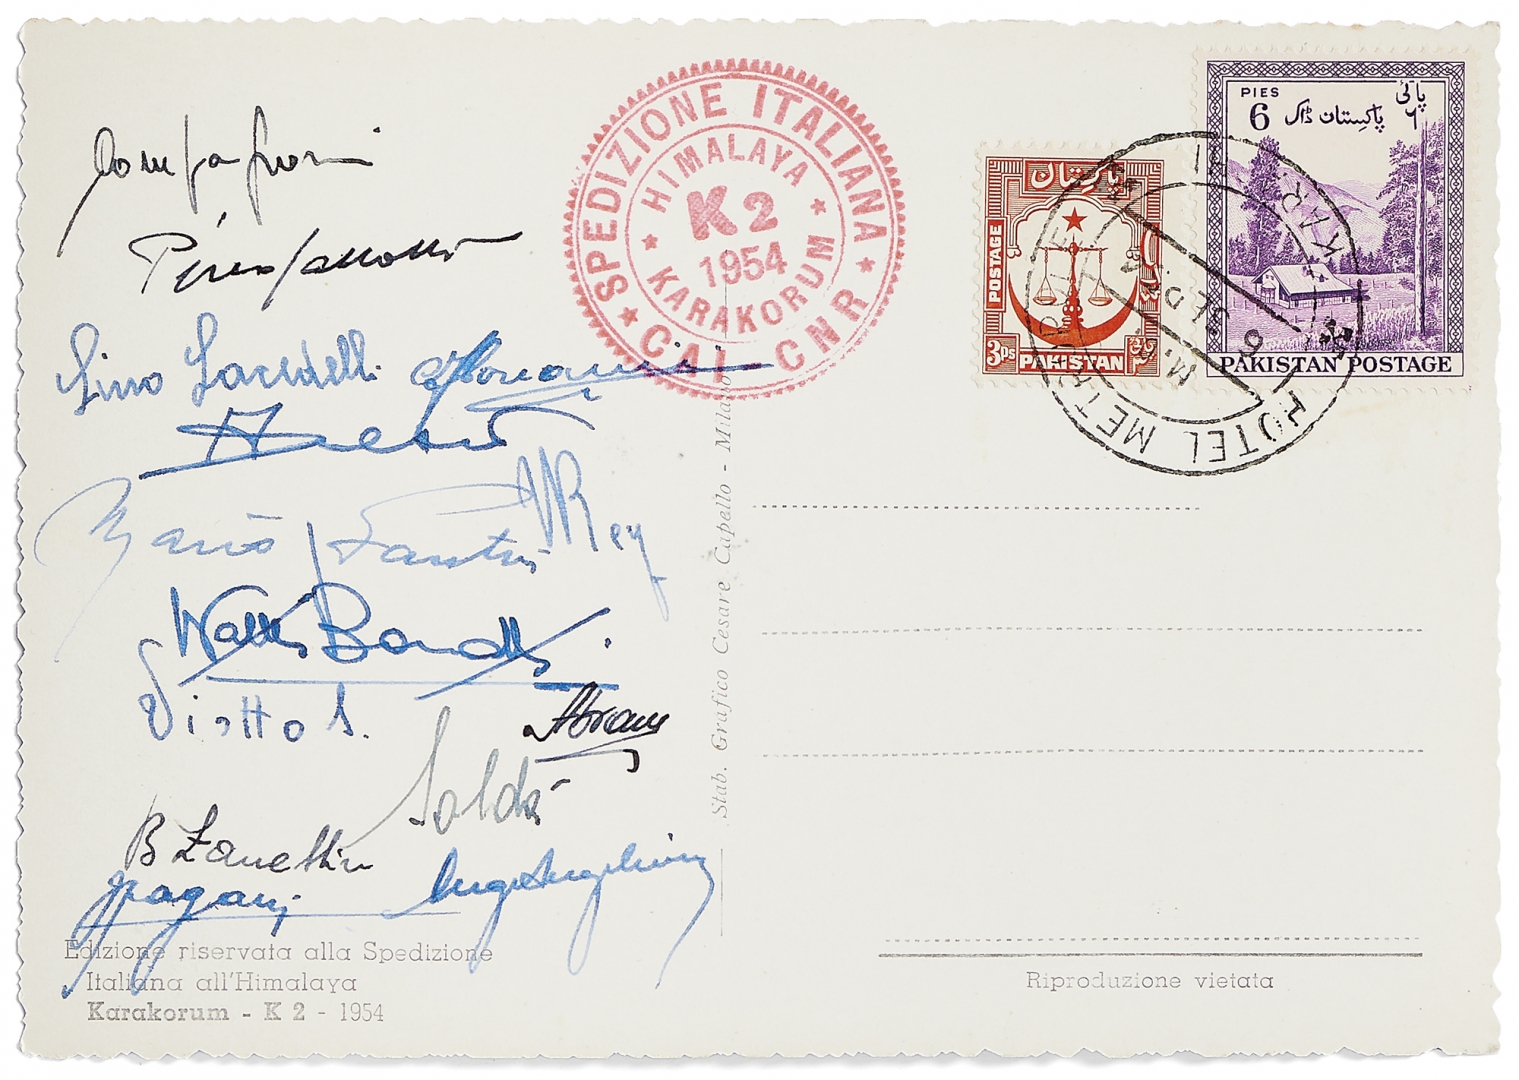 Compagnoni
Pino Gallotti
Lino Lacedelli
Mario Fantin
U Rey
Walter Bonatti
Viotto S.
Abram
Soldà
B Zanettin
G Pagani
Ugo Angelino
Edizione riservata alla Spedizione
Italiana all'Himalaya
Karakorum - K 2 - 1954
SPEDIZIONE ITALIANA
★ CAI - CNR ★
HIMALAYA
★ KARAKORUM ★
K2
1954
Stab. Grafico Cesare Capello - Milano
پاکستان
POSTAGE
3Ps PAKISTAN
PIES
6
پائی
٦
پاکستان ڈاک
PAKISTAN POSTAGE
HOTEL METROPOLE
KARACHI
Riproduzione vietata